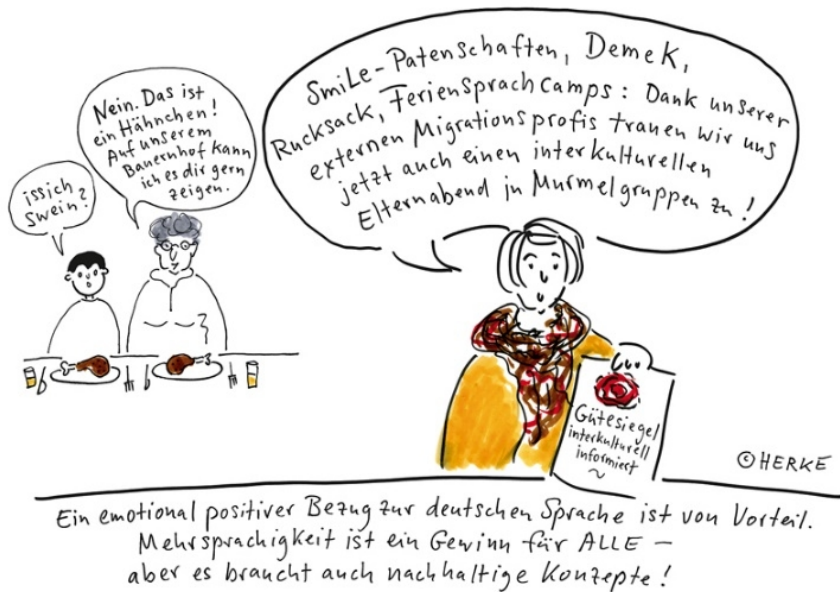 issich
Swein?
Nein. Das ist
ein Hähnchen!
Auf unserem
Bauernhof kann
ich es dir gern
zeigen.
SmiLe-Patenschaften, DemeK,
Rucksack, FeriensprachCamps: Dank unserer
externen Migrationsprofis trauen wir uns
jetzt auch einen interkulturellen
Elternabend in Murmelgruppen zu!
Gütesiegel
interkulturell
informiert
© HERKE
Ein emotional positiver Bezug zur deutschen Sprache ist von Vorteil.
Mehrsprachigkeit ist ein Gewinn für ALLE –
aber es braucht auch nachhaltige Konzepte!